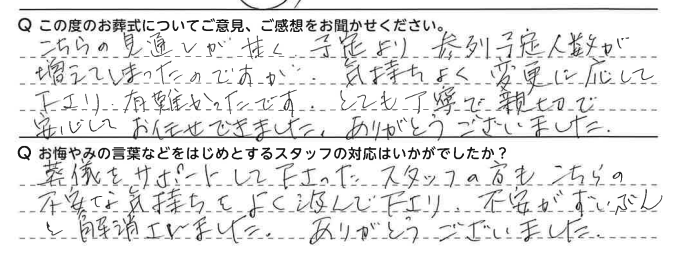 Q この度のお葬式についてご意見、ご感想をお聞かせください。
こちらの見通しが甘く、予定より参列予定人数が
増えてしまったのですが、気持ちよく変更に応じて
下エリ、有難かったです。とても丁寧で親切で
安心してお任せできました。ありがとうございました。
Q お悔やみの言葉などをはじめとするスタッフの対応はいかがでしたか？
葬儀をサポートして下エった スタッフの方も こちらの
不安な気持ちをよく汲んで下エり、不安がずいぶん
と解消エれました。ありがとうございました。